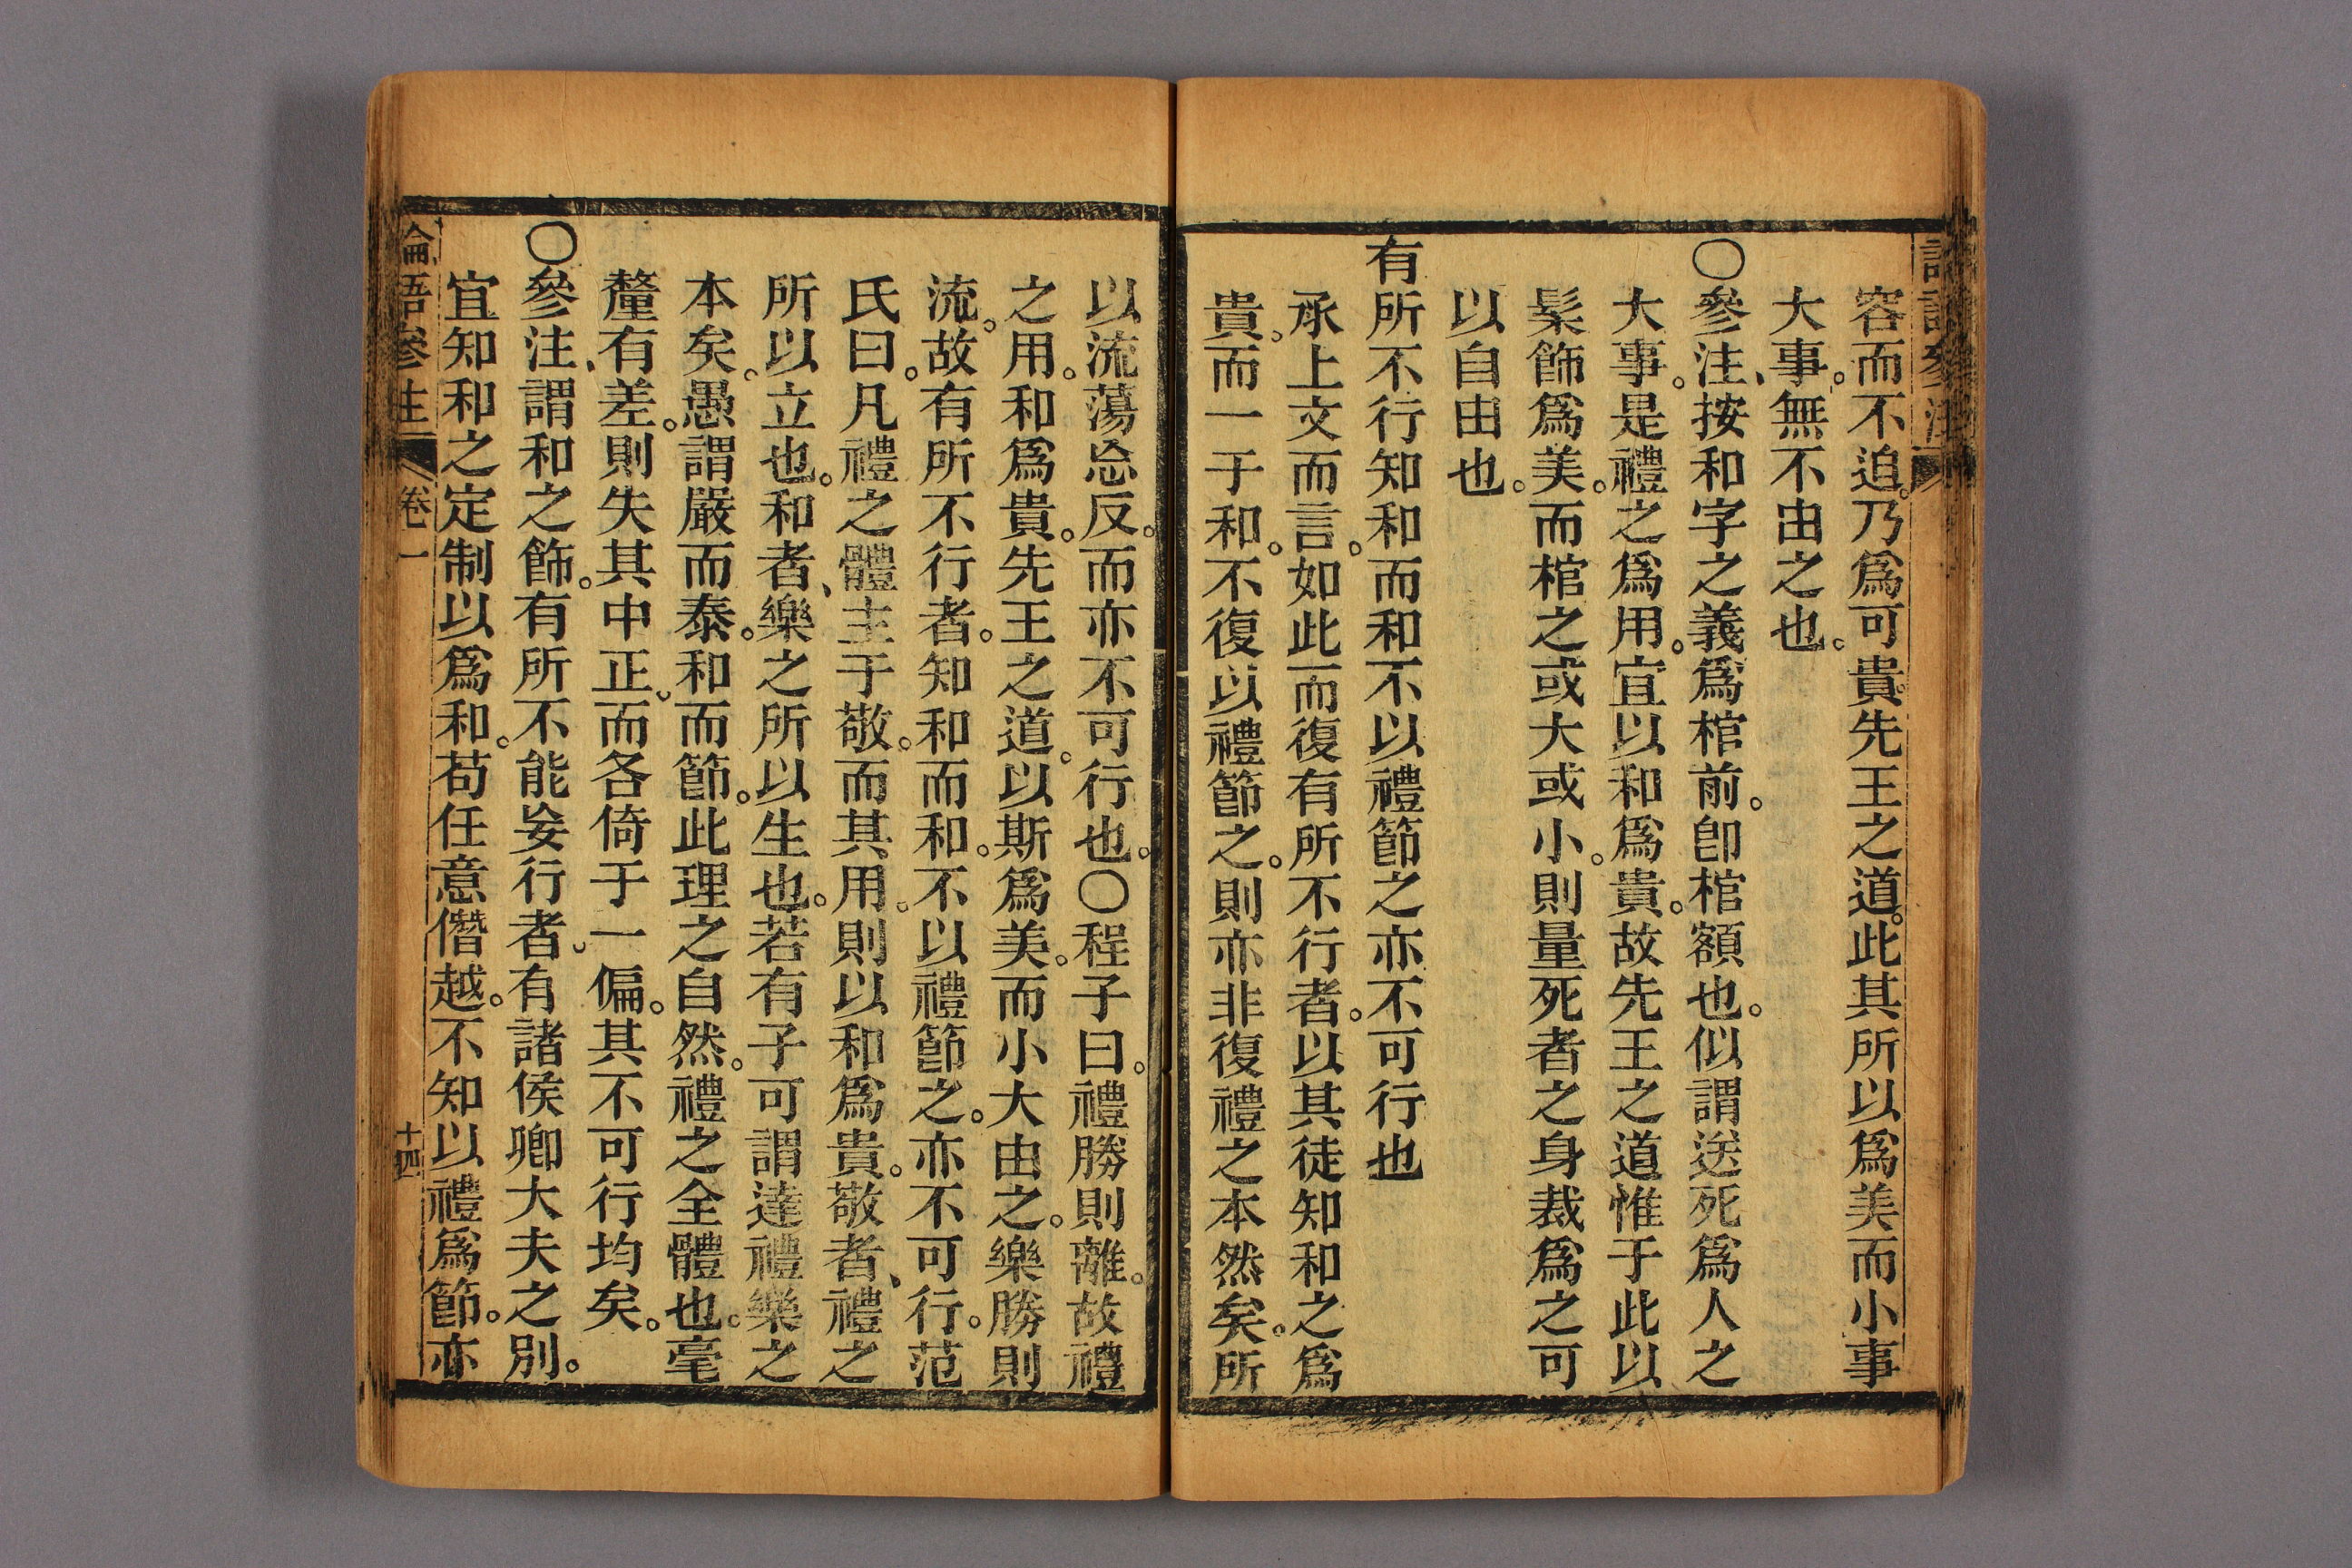 容而不迫。乃爲可貴。先王之道。此其所以爲美而小事
大事。無不由之也。
〇參注、按和字之義爲棺前。卽棺額也。似謂送死爲人之
大事。是禮之爲用。宜以和爲貴。故先王之道惟于此以
髹飾爲美。而棺之或大或小。則量死者之身裁爲之可
以自由也。
有所不行知和而和不以禮節之亦不可行也
承上文而言。如此而復有所不行者。以其徒知和之爲
貴。而一于和。不復以禮節之。則亦非復禮之本然矣。所
以流蕩忘反。而亦不可行也。〇程子曰。禮勝則離。故禮
之用。和爲貴。先王之道。以斯爲美。而小大由之。樂勝則
流。故有所不行者。知和而和。不以禮節之。亦不可行。范
氏曰。凡禮之體主于敬。而其用。則以和爲貴。敬者、禮之
所以立也。和者、樂之所以生也。若有子可謂達禮樂之
本矣。愚謂嚴而泰。和而節。此理之自然。禮之全體也。毫
釐有差。則失其中正。而各倚于一偏。其不可行均矣。
〇參注、謂和之飾。有所不能妄行者。有諸侯卿大夫之別。
宜知和之定制以爲和。苟任意僭越。不知以禮爲節。亦
論語參注 卷一 十四